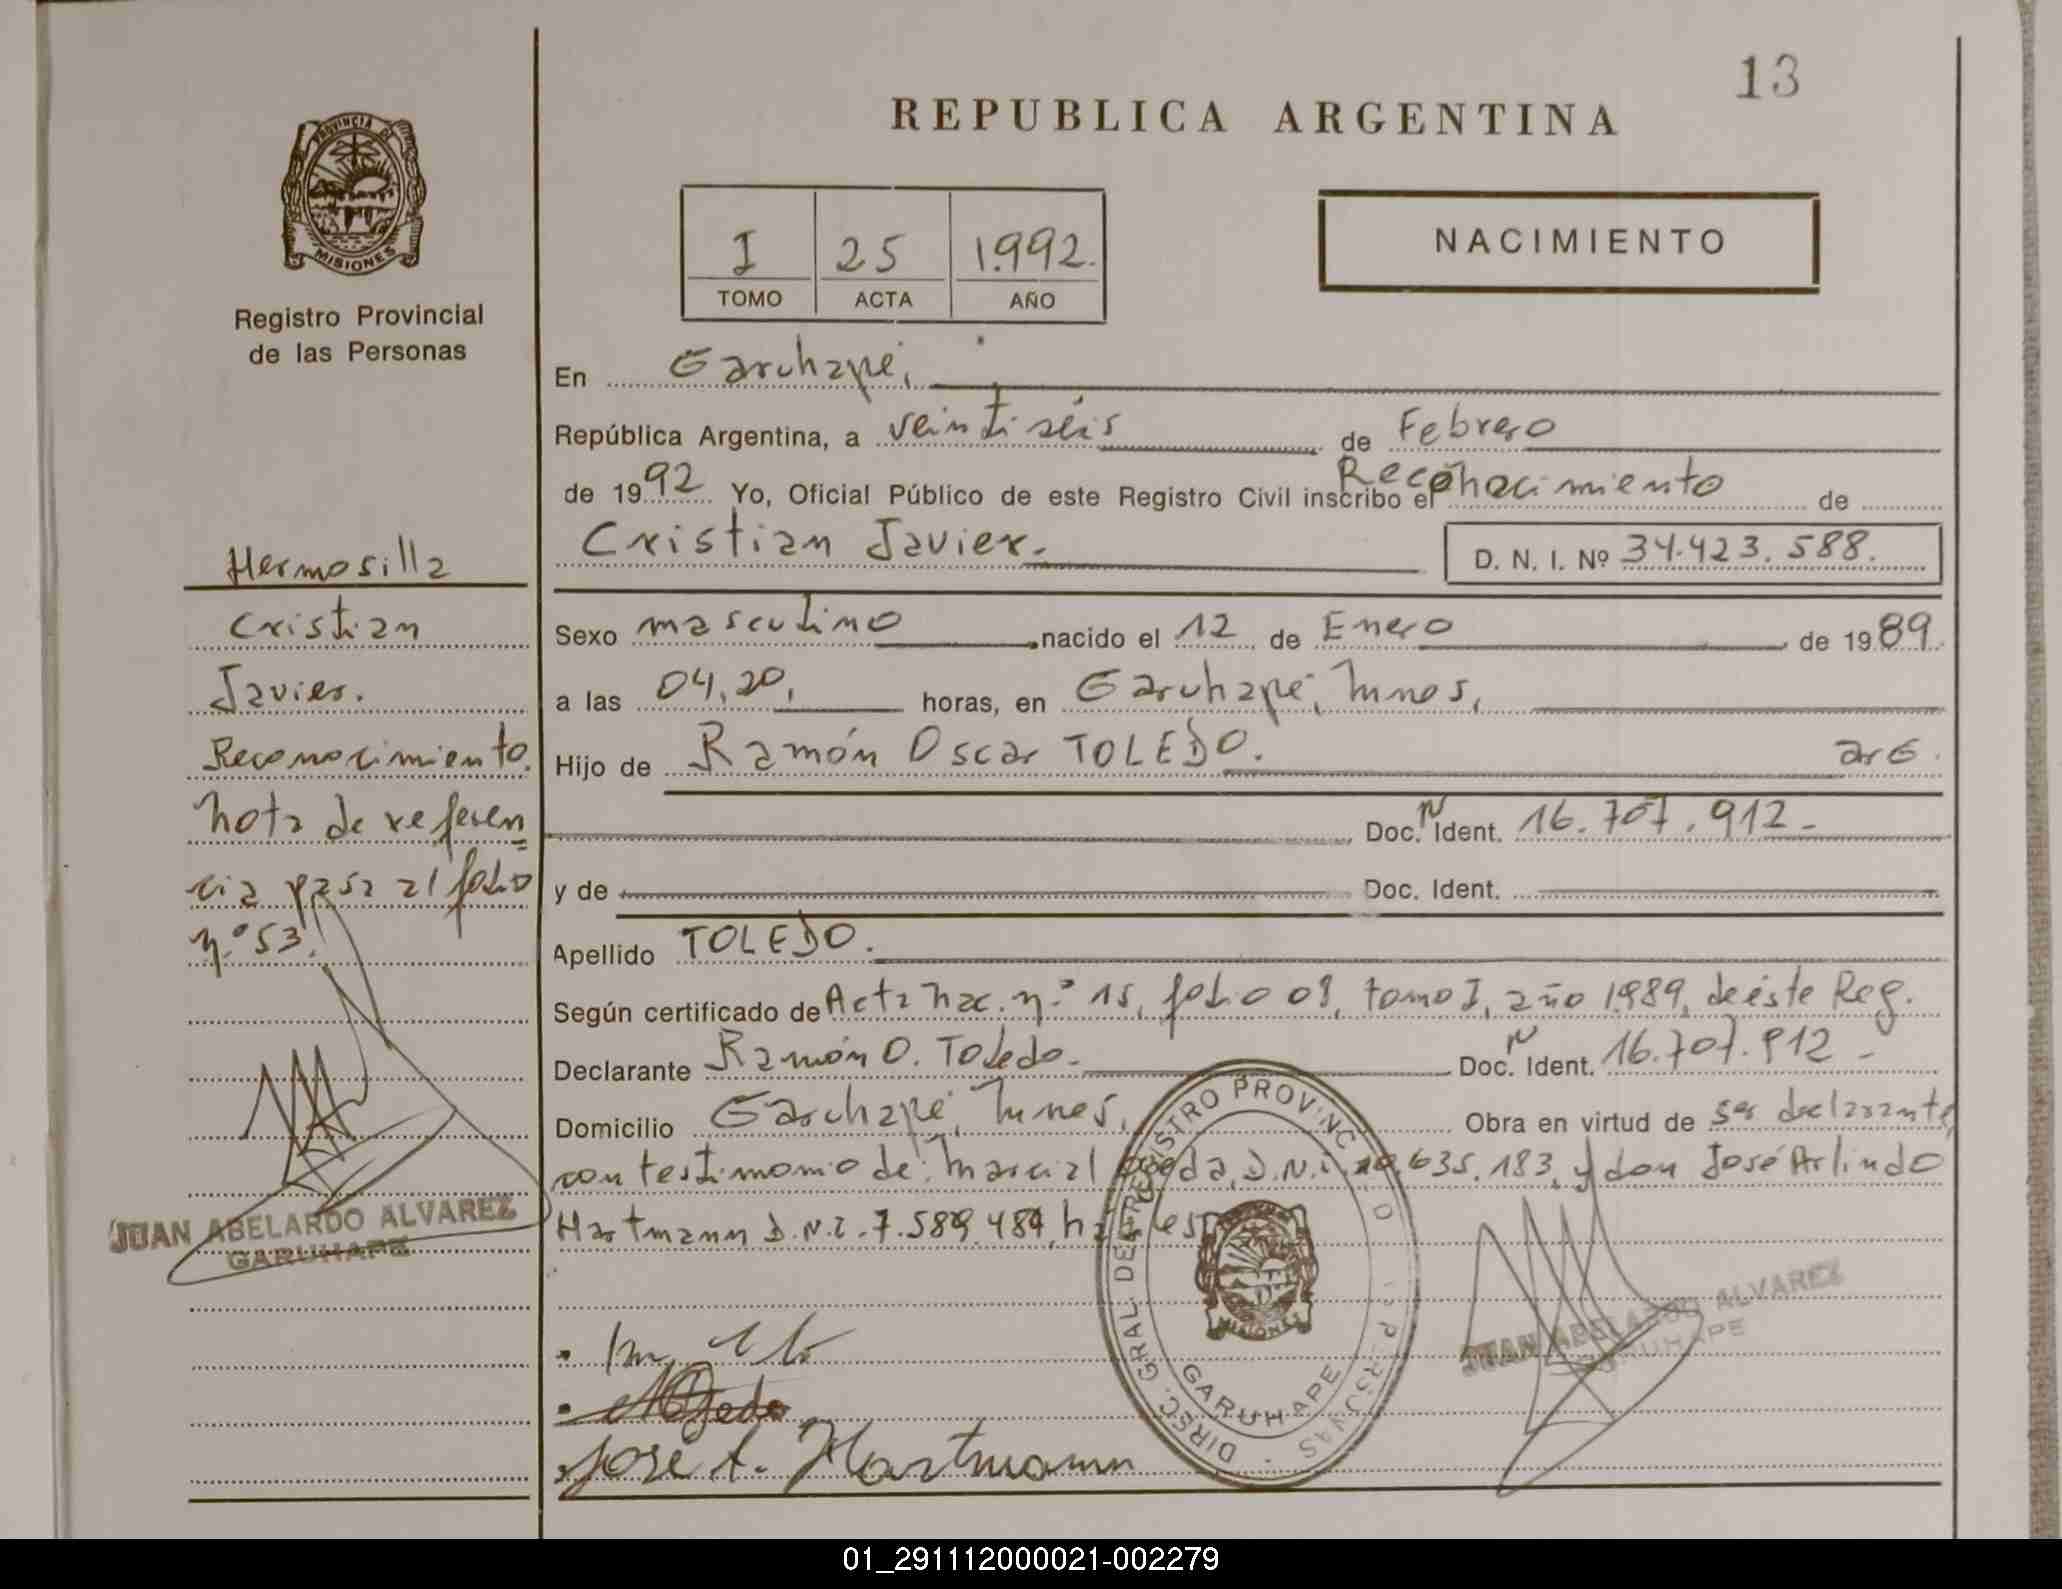 13
REPUBLICA ARGENTINA
PROVINCIA D
MISIONES
Registro Provincial
de las Personas
I 25 1.992.
TOMO ACTA AÑO
NACIMIENTO
En Garuhapé,
República Argentina, a veintiséis de Febrero
de 1992 Yo, Oficial Público de este Registro Civil inscribo el Reconocimiento de
Cristian Javier. D. N. I. Nº 34.423.588.
Sexo masculino nacido el 12 de Enero de 1989
a las 04,20, horas, en Garuhapé, Mnes,
Hijo de Ramón Oscar TOLEDO. arG.
Doc. N Ident. 16.707.912-
y de Doc. Ident.
Apellido TOLEDO.
Según certificado de Acta Nac. n.º 15, folio 08, tomo I, año 1989, de éste Reg.
Declarante Ramón O. Toledo. Doc. N Ident. 16.707.912-
Domicilio Garuhapé, Mnes, Obra en virtud de ser declarante,
con testimonio de: Marcial D.N.I. 635.183, y don José Arlindo
Hartmann D.N.I. 7.589.489,
José A. Hartmann
Hermosilla
Cristian
Javier.
Reconocimiento.
Nota de referen=
cia pasa al folio
n.º 53.
JUAN ABELARDO ALVAREZ
GARUHAPE
DIREC. GRAL. DEL REGISTRO PROVINC PERSONAS
GARUHAPE
MISIONES
JUAN ABELARDO ALVAREZ
GARUHAPE
01_291112000021-002279